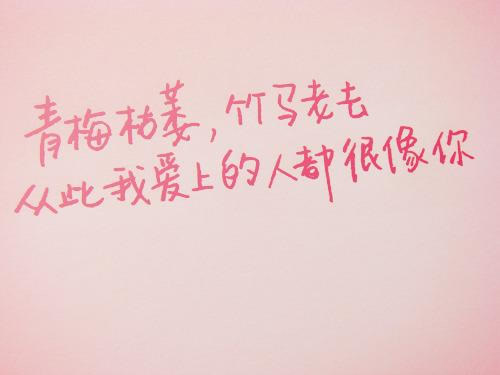 青梅枯萎,竹马老去
从此我爱上的人都很像你